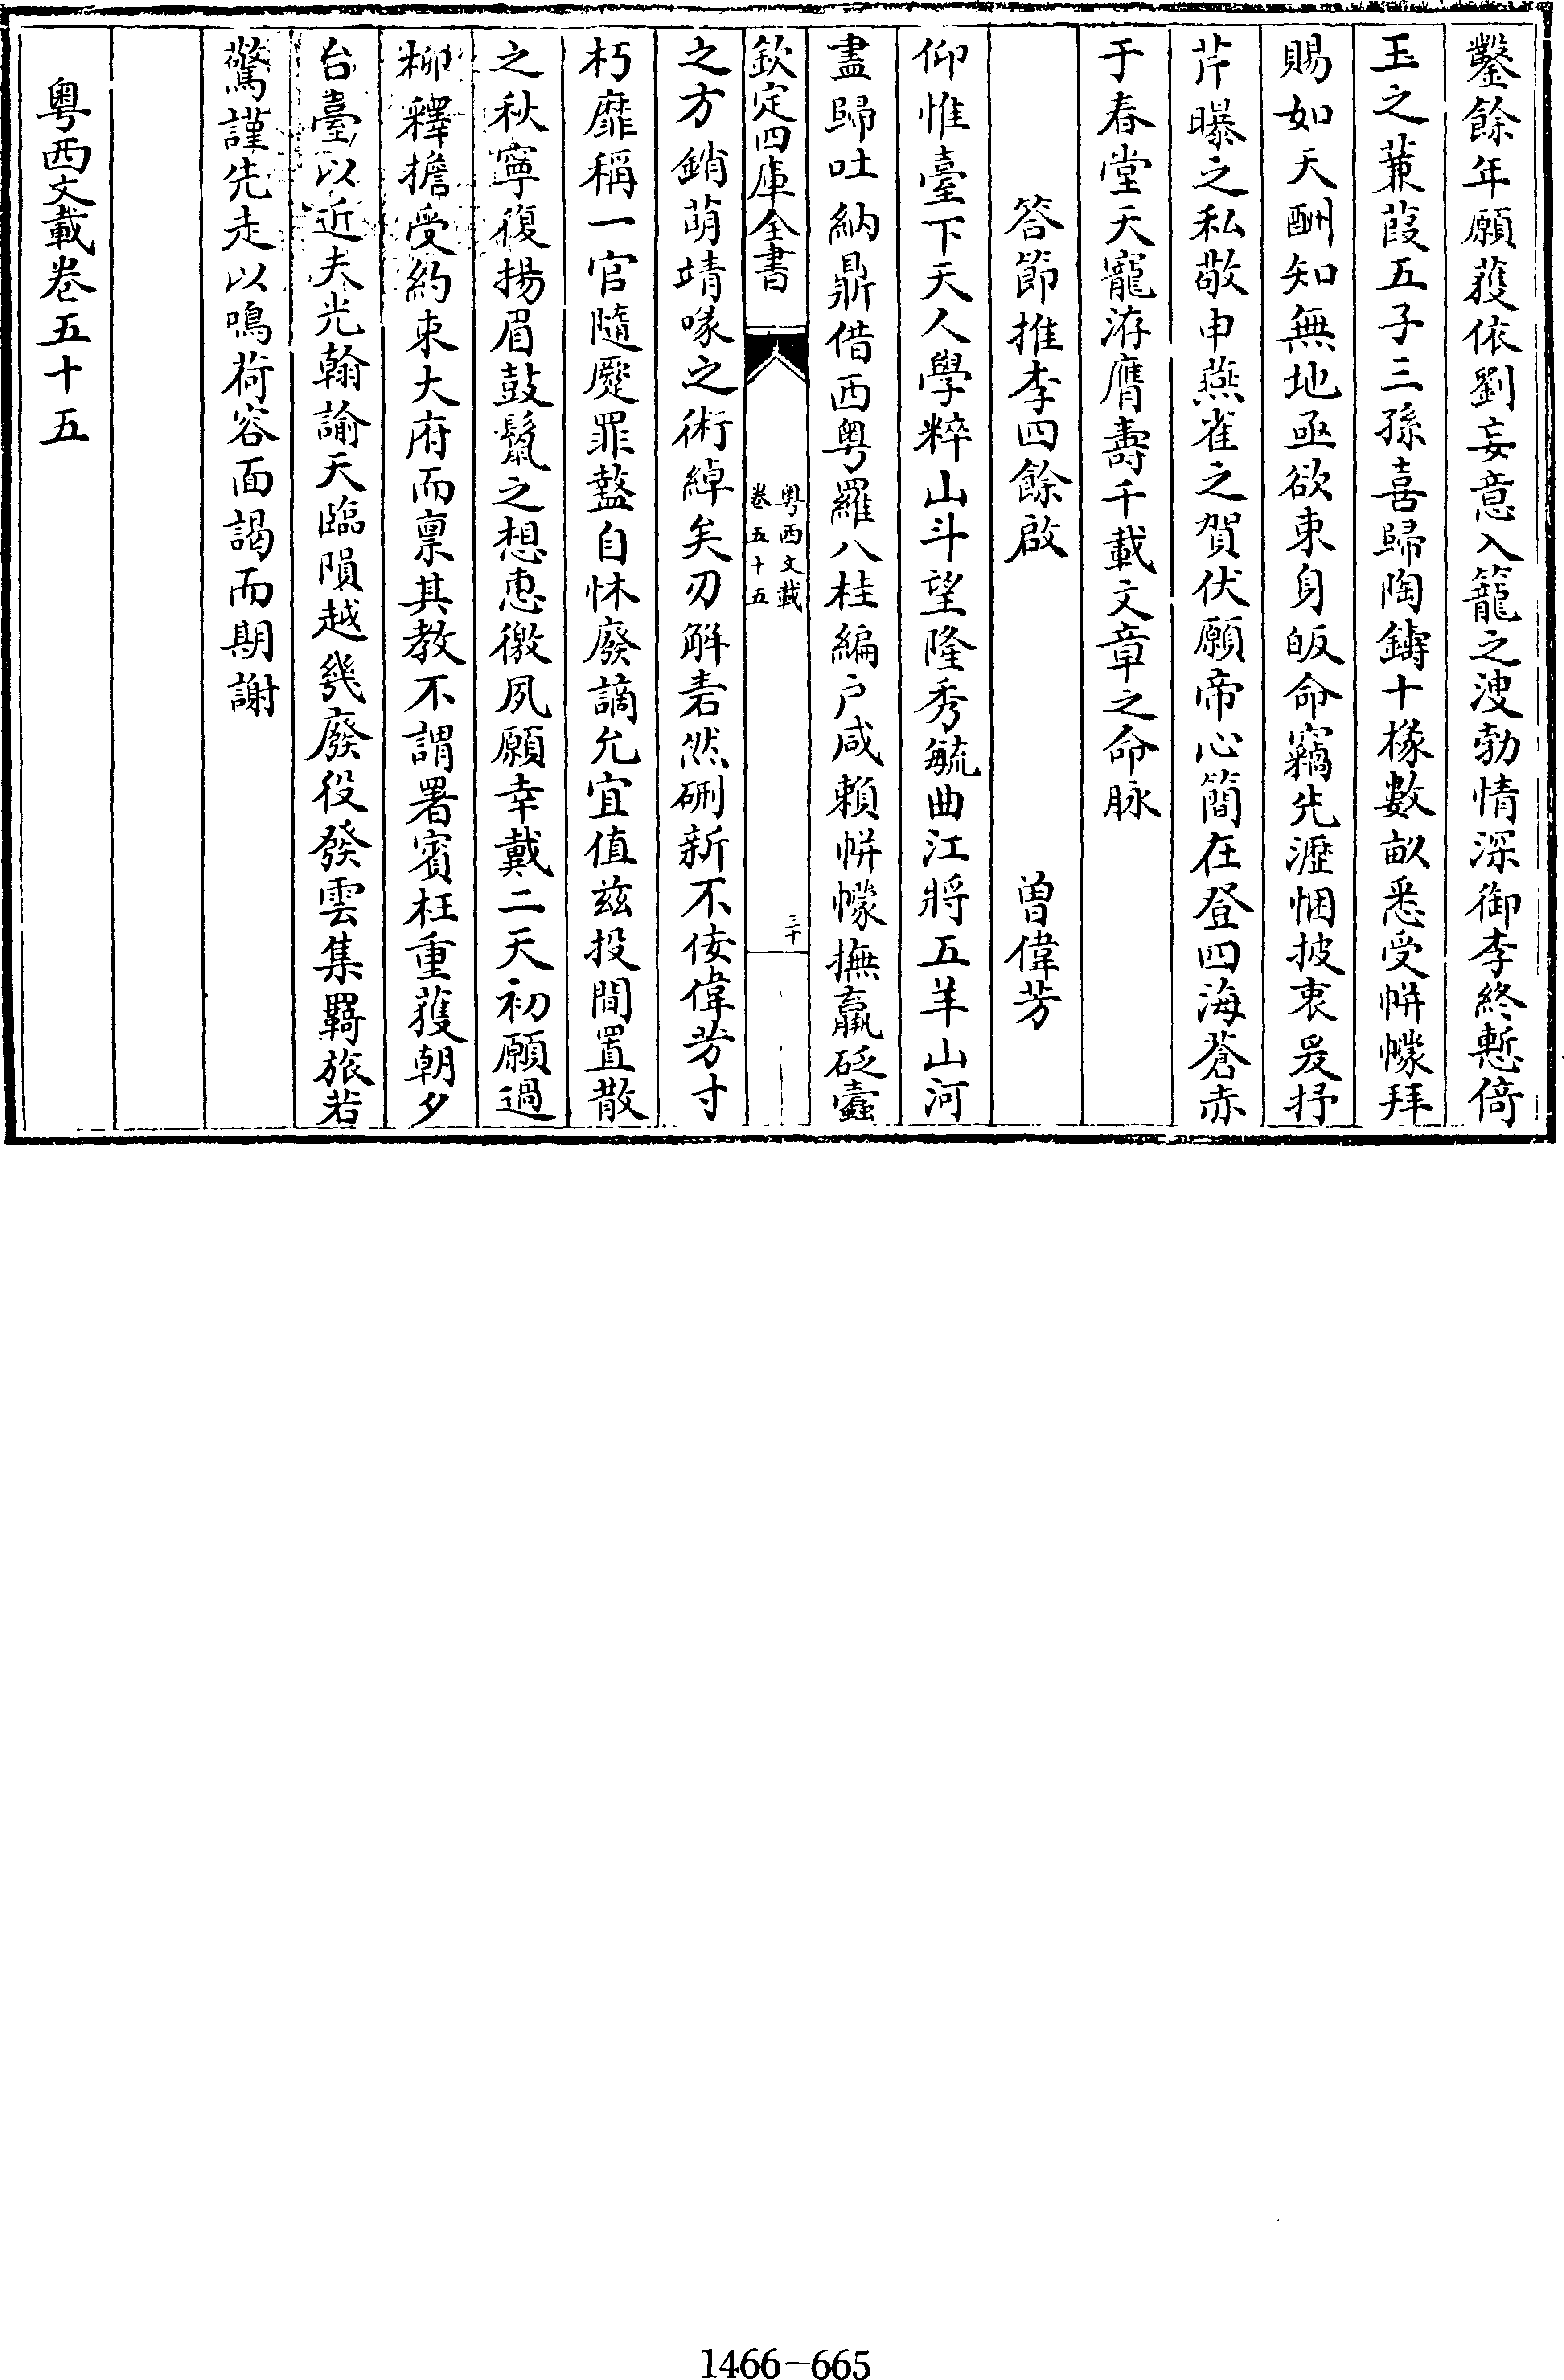 鑿餘年願蒦依劉妄意入籠之溲勃情深御李終慙倚
玉之蒹葭五子三孫喜歸陶鑄十椽數畝悉受帡幪拜
賜如天酬知無地亟欲束身皈命竊先瀝悃披衷爰抒
芹曝之私敬申燕雀之賀伏願帝心簡在登四海蒼赤
于春堂天寵洊膺壽千載文章之命脉
答節推李四餘啟 曽偉芳
仰惟臺下天人學粹山斗望隆秀毓曲江將五羊山河
盡歸吐納鼎借西粤羅八桂編户咸賴帡幪撫羸砭蠹
欽定四庫全書
粤西文載
卷五十五
三十
之方銷萌靖喙之術綽矣刃解砉然硎新不佞偉芳寸
朽靡稱一官隨廢罪盩自怵廢謫允宜值兹投閒置散
之秋寧復揚眉鼓鬣之想惠徼夙願幸戴二天初願過
柳釋擔受約束大府而禀其教不謂署賓枉重蒦朝夕
台臺以近夫光翰諭天臨隕越㡬廢役發雲集羇旅若
驚謹先走以鳴荷容面謁而期謝
粤西文載卷五十五
1466-665